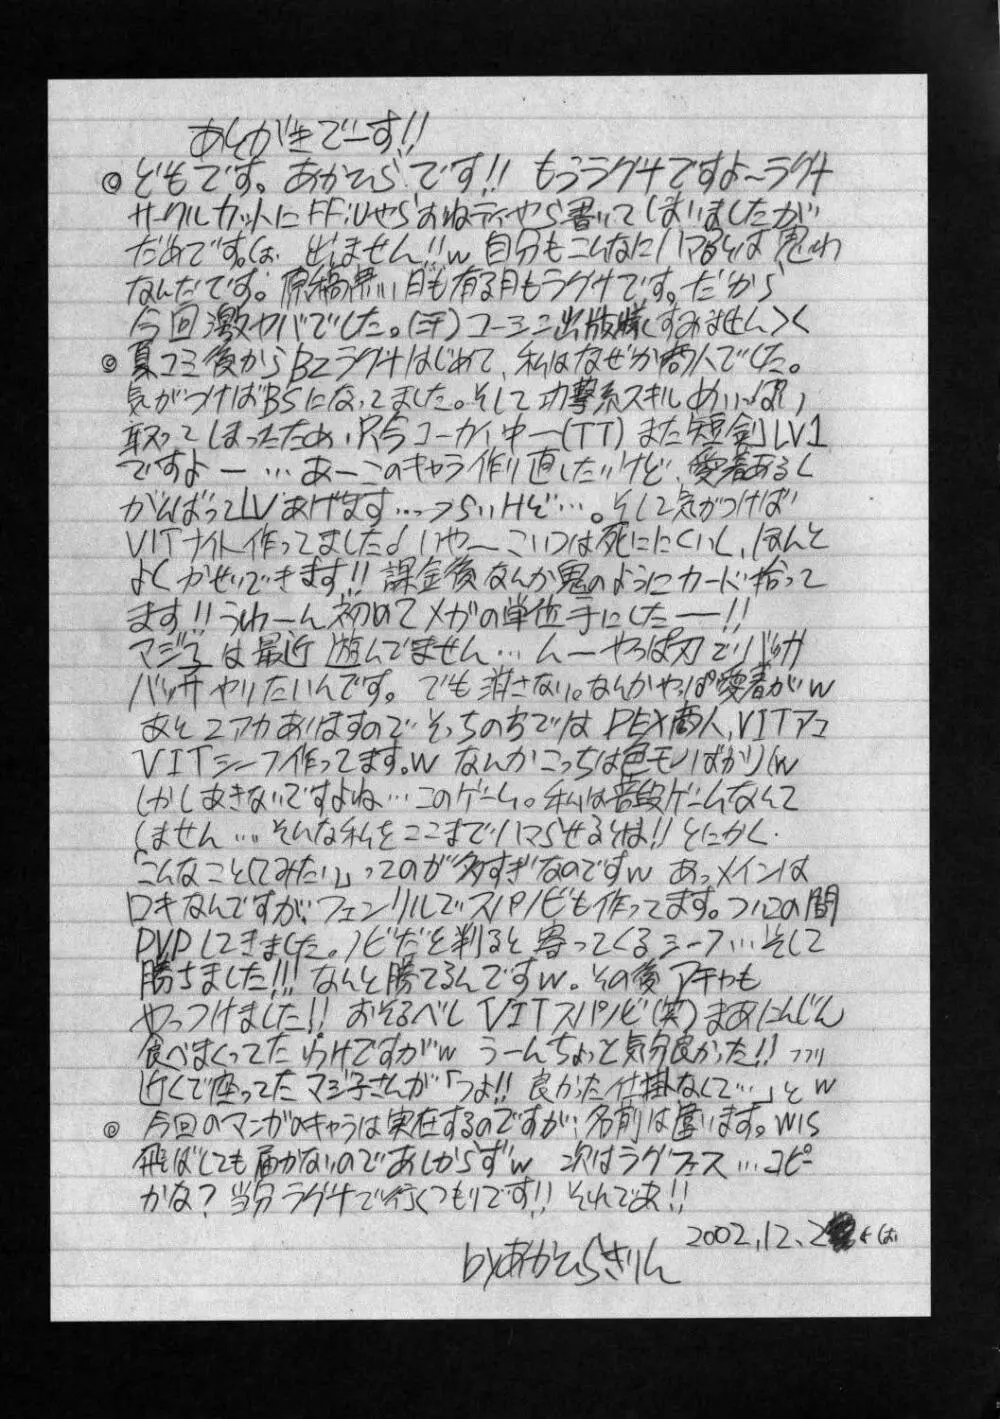 あとがきでーす!!
◎ どもです。あかひらです!! もうラグナですよ〜ラグナ
サークルカットにFFやらおねティやら書いてしまいましたが
だめですは、出ません!!w 自分もこんなにハマるとは思わ
なんだです。原稿無い日も有る日もラグナです。だから
今回激ヤバでした。(汗) コーシン出版様すみません><
◎ 夏コミ後からβ2ラグナはじめて、私はなぜか商人でした。
気がつけばBSになってました。そして攻撃系スキルめいいっぱい
取ってしまったため、只今コーカイ中ー(TT) また短剣LV1
ですよー… あーこのキャラ作り直したいけど、愛着あるし
がんばってLVあげます…つらいけど…。そして気がつけば
VITナイト作ってました♪ いやーこいつは死ににくいし、ほんと
よくかせいできます!! 課金後なんか鬼のようにカード拾って
ます!! うわーん初めてメガの単位手にしたー!!
マジ子は最近遊んでません… んーやっぱ刃でバッサ
バッサやりたいんです。でも消さない。なんかやっぱ愛着がw
あと2アカありますので そっちの方では DEX商人、VITアコ
VITシーフ作ってます。w なんかこっちは色モノばかり(w
しかしあきないですよね… このゲーム。私は普段ゲームなんて
しません… そんな私をここまでハマらせるとは!! とにかく
「こんなことしてみたい」ってのが多すぎなのですw あっメインは
ロキなんですが、フェンリルでスパノビも作ってます。つい この間
PVPしてきました。ノビだと判ると寄ってくるシーフ… そして
勝ちました!!! なんと勝てるんですw。その後アチャも
やっつけました!! おそるべし VITスパノビ(笑) まあにんじん
食べまくってたわけですがw うーんちょっと気分良かった!! フフリ
近くで座ってたマジ子さんが「つよ!! 良かった仕掛なくて…」とw
◎ 今回のマンガのキャラは実在するのですが、名前は違います。WIS
飛ばしても届かないのであしからずw 次はラグフェス… コピー
かな? 当分ラグナで行くつもりです!! それでわ!!
2002.12.2
byあかひらきりん